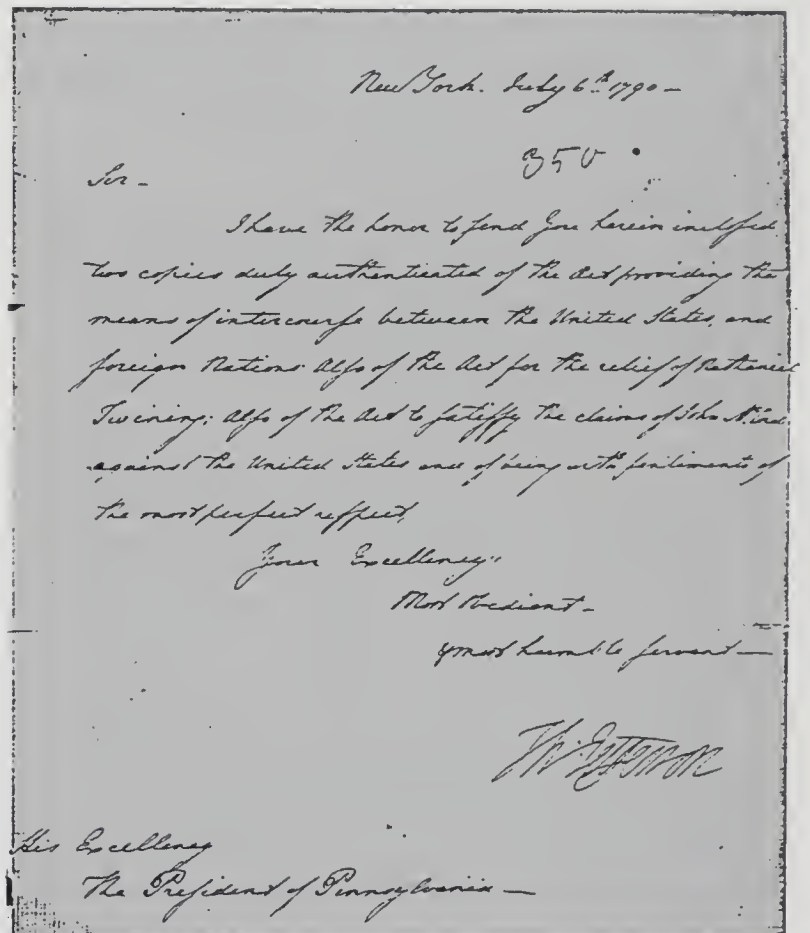 New York. July 6th 1790 —
350
Sir —
I have the honor to send you herein inclosed
two copies duly authenticated of the Act providing the
means of intercourse between the United States, and
foreign Nations. Also of the Act for the relief of Nathaniel
Twining: also of the Act to satisfy the claims of John
against the United States and of being with sentiments of
the most perfect respect,
Your Excellency's
Most Obedient —
& most humble servant —
Th: Jefferson
His Excellency
The President of Pennsylvania —